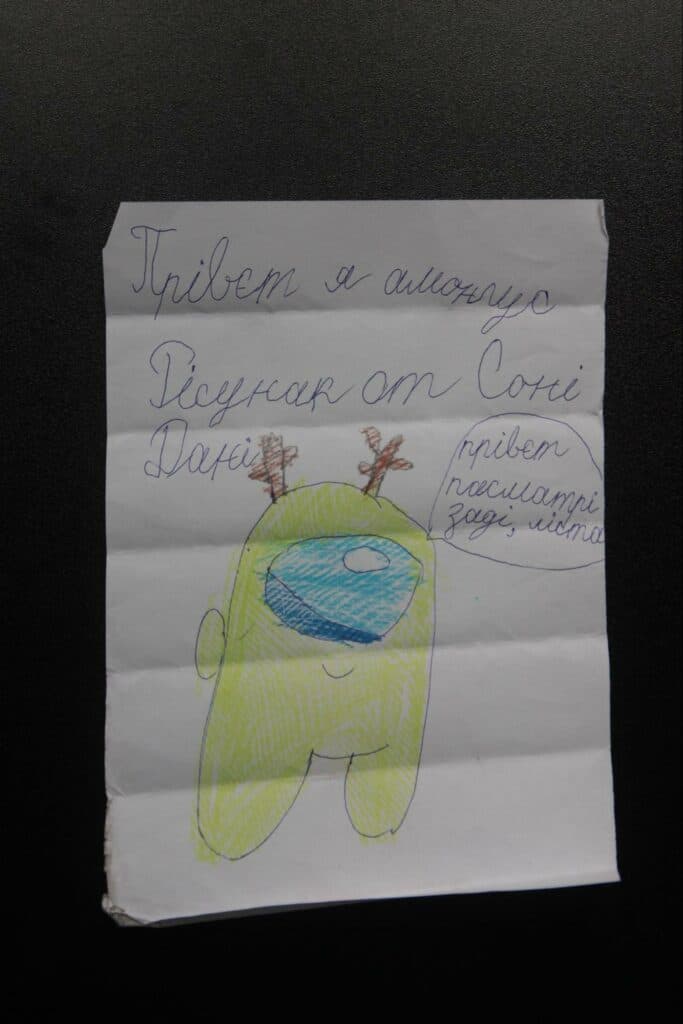 Прівєт я амонгус
Рісунак от Соні
Дані
прівєт
пасматрі
заді, ліста